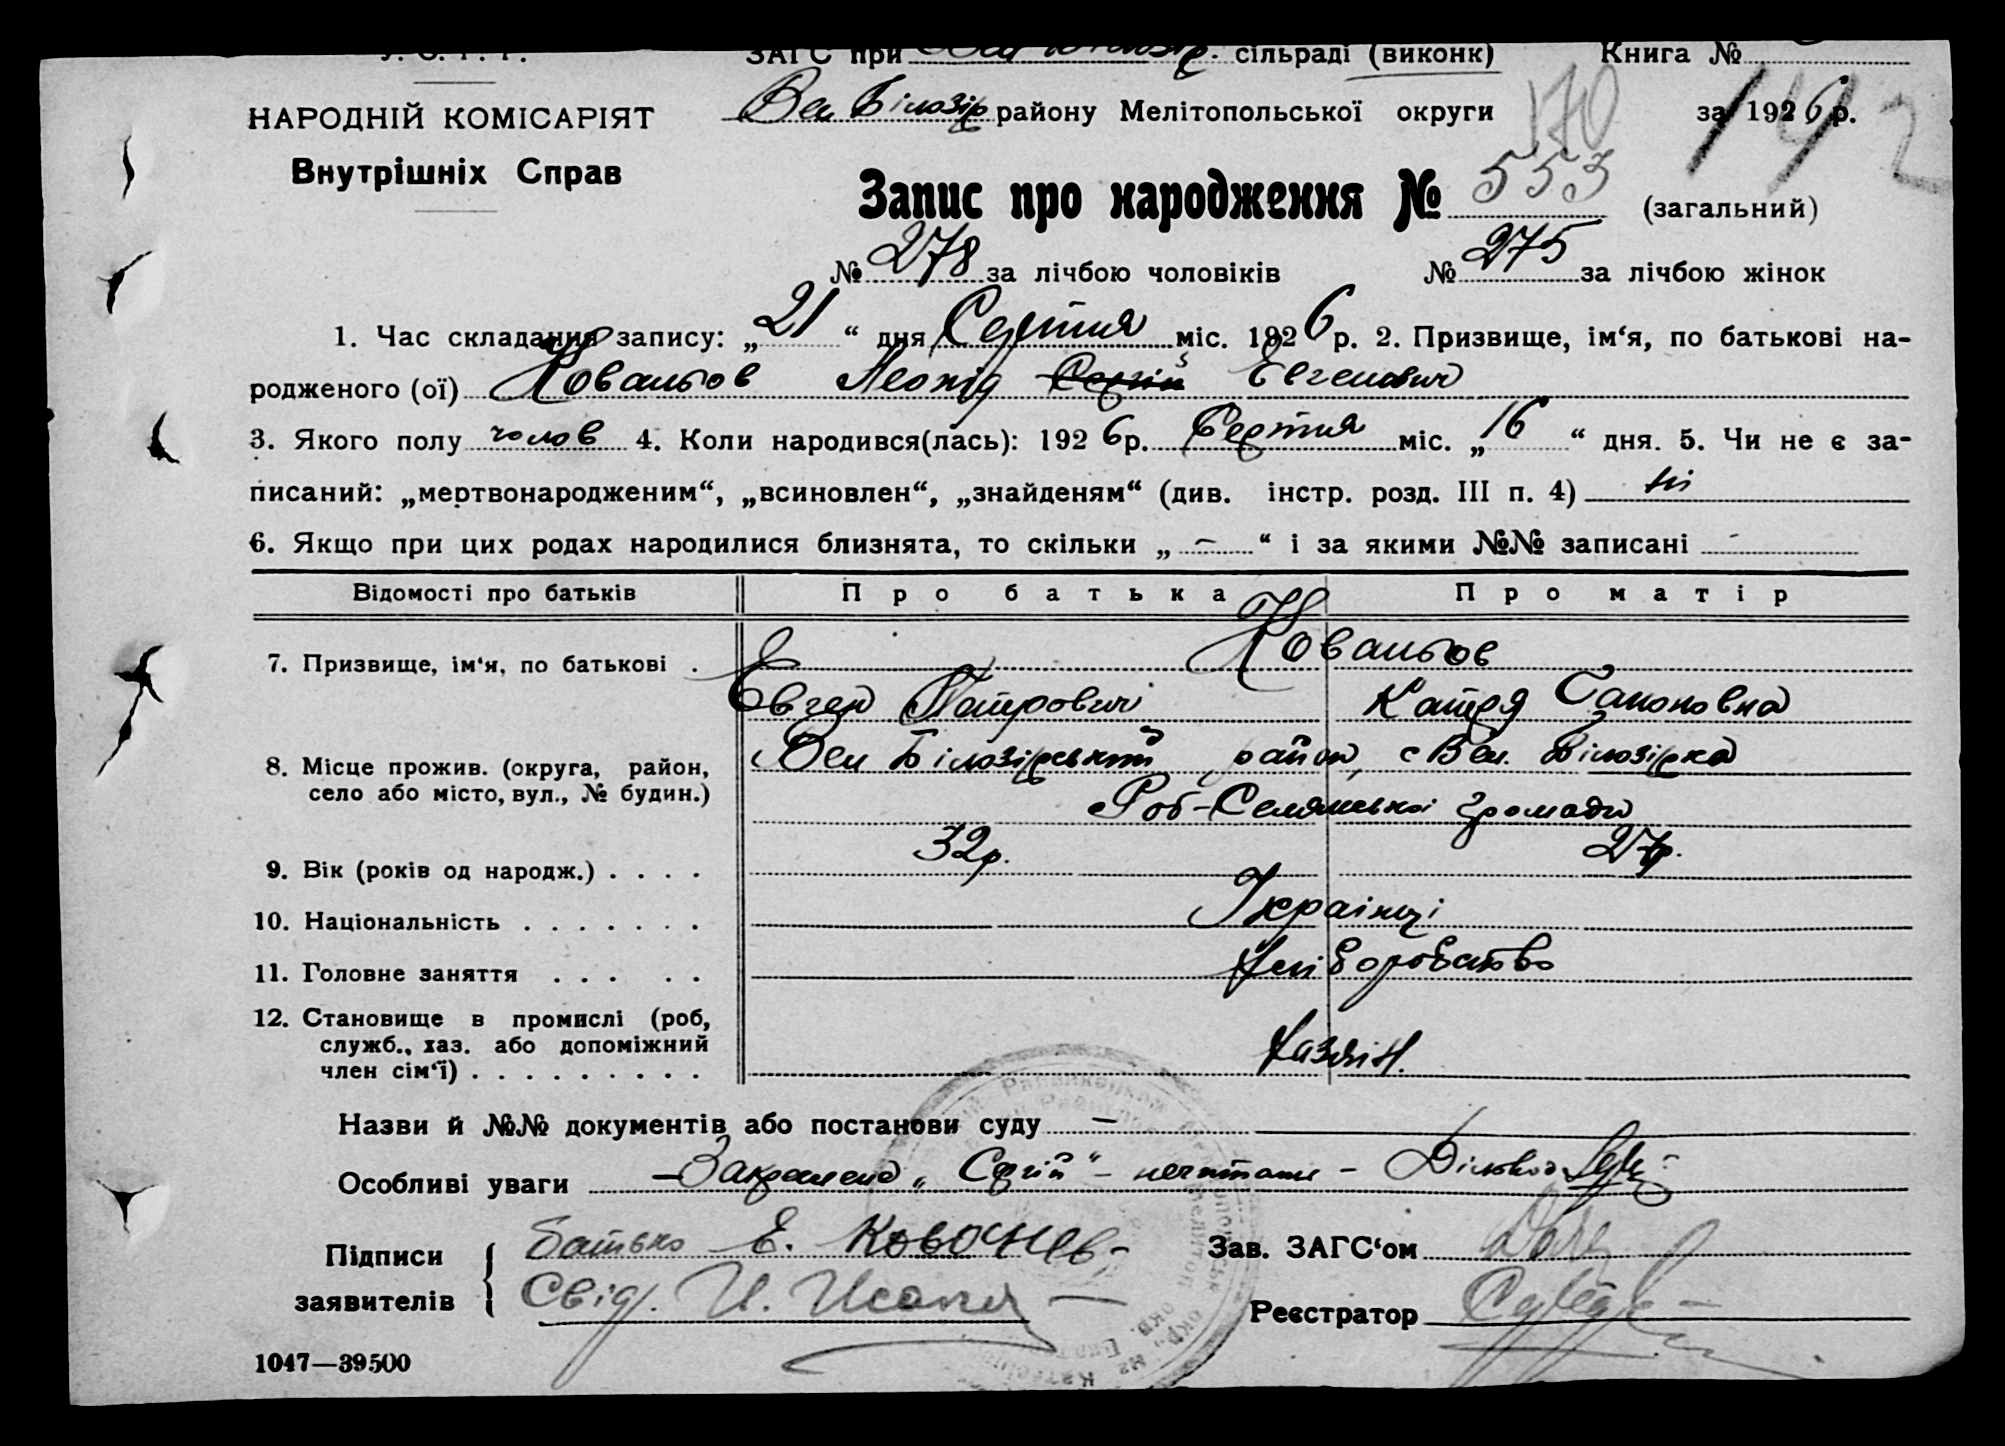 У. С. Р. Р. ЗАГС при Вел Білозір. сільраді (виконк) Книга №
НАРОДНІЙ КОМІСАРІЯТ Вел Білозір району Мелітопольської округи за 1926 р.
170 142
Внутрішніх Справ
Запис про народження № 553 (загальний)
№ 278 за лічбою чоловіків № 275 за лічбою жінок
1. Час складання запису: „21“ дня Серпня міс. 1926 р. 2. Призвище, ім‘я, по батькові на-
родженого (ої) Ковальов Леонід Сергій Євгенович
3. Якого полу чолов 4. Коли народився(лась): 1926 р. Серпня міс. „16“ дня. 5. Чи не є за-
писаний: „мертвонародженим“, „всиновлен“, „знайденям“ (див. інстр. розд. III п. 4) ні
6. Якщо при цих родах народилися близнята, то скільки „ — “ і за якими №№ записані -
Відомості про батьків Про батька Про матір
7. Призвище, ім‘я, по батькові . Ковальов
Євген Петрович Катря
8. Місце прожив. (округа, район, Вел Білозірський район, с Вел. Білозірка
село або місто, вул., № будин.) Роб-Селянської громади
9. Вік (років од народж.) . . . . 32р. 27р.
10. Національність . . . . . . . Українці
11. Головне заняття . . . . . Хліборобство
12. Становище в промислі (роб,
служб., хаз. або допоміжний
член сім‘ї) . . . . . . . . . Хазяїн.
Назви й №№ документів або постанови суду —
Особливі уваги — Закреслено „Сергій“ – нечитати – Діловод
Підписи батько Е. Зав. ЗАГС‘ом
заявителів Свід. И. Реєстратор
1047—39500